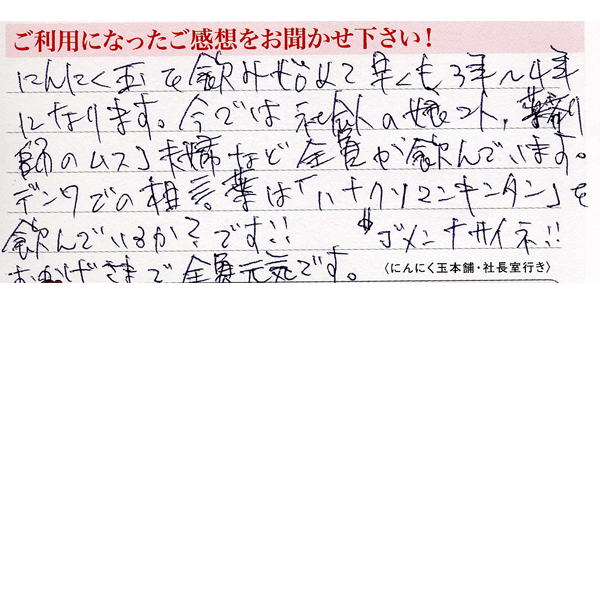 ご利用になったご感想をお聞かせ下さい！
にんにく玉を飲み始めて早くも3年〜4年
になります。今では社会人の娘2人,薬剤
師のムスコ夫婦など全員が飲んでいます。
デンワでの相言葉は「ハナクソマンキンタン」を
飲んでいるか?です!! ゴメンナサイネ!!
おかげさまで全員元気です。
〈にんにく玉本舗・社長室行き〉